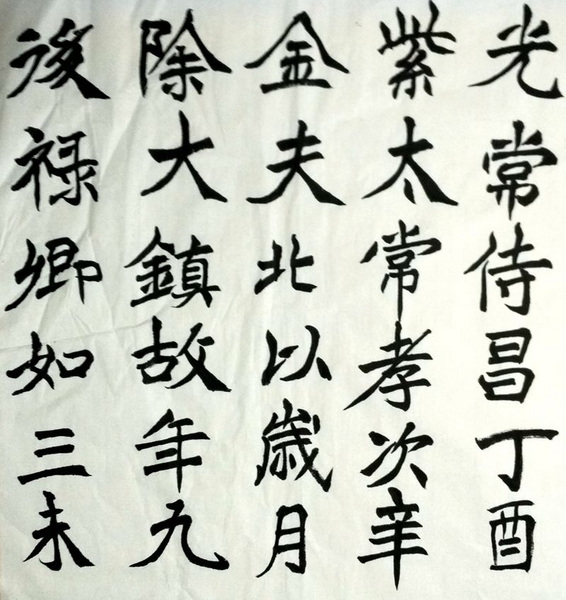 後除金紫光
禄大夫太常
卿鎮北常侍
如故以孝昌
三年歳次丁
未九月辛酉